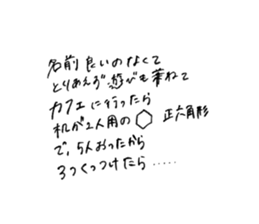 名前良いのなくて
とりあえず遊びも兼ねて
カフェに行ったら
机が2人用の⬡ 正六角形
で、5人おったから
3つくっつけたら.....